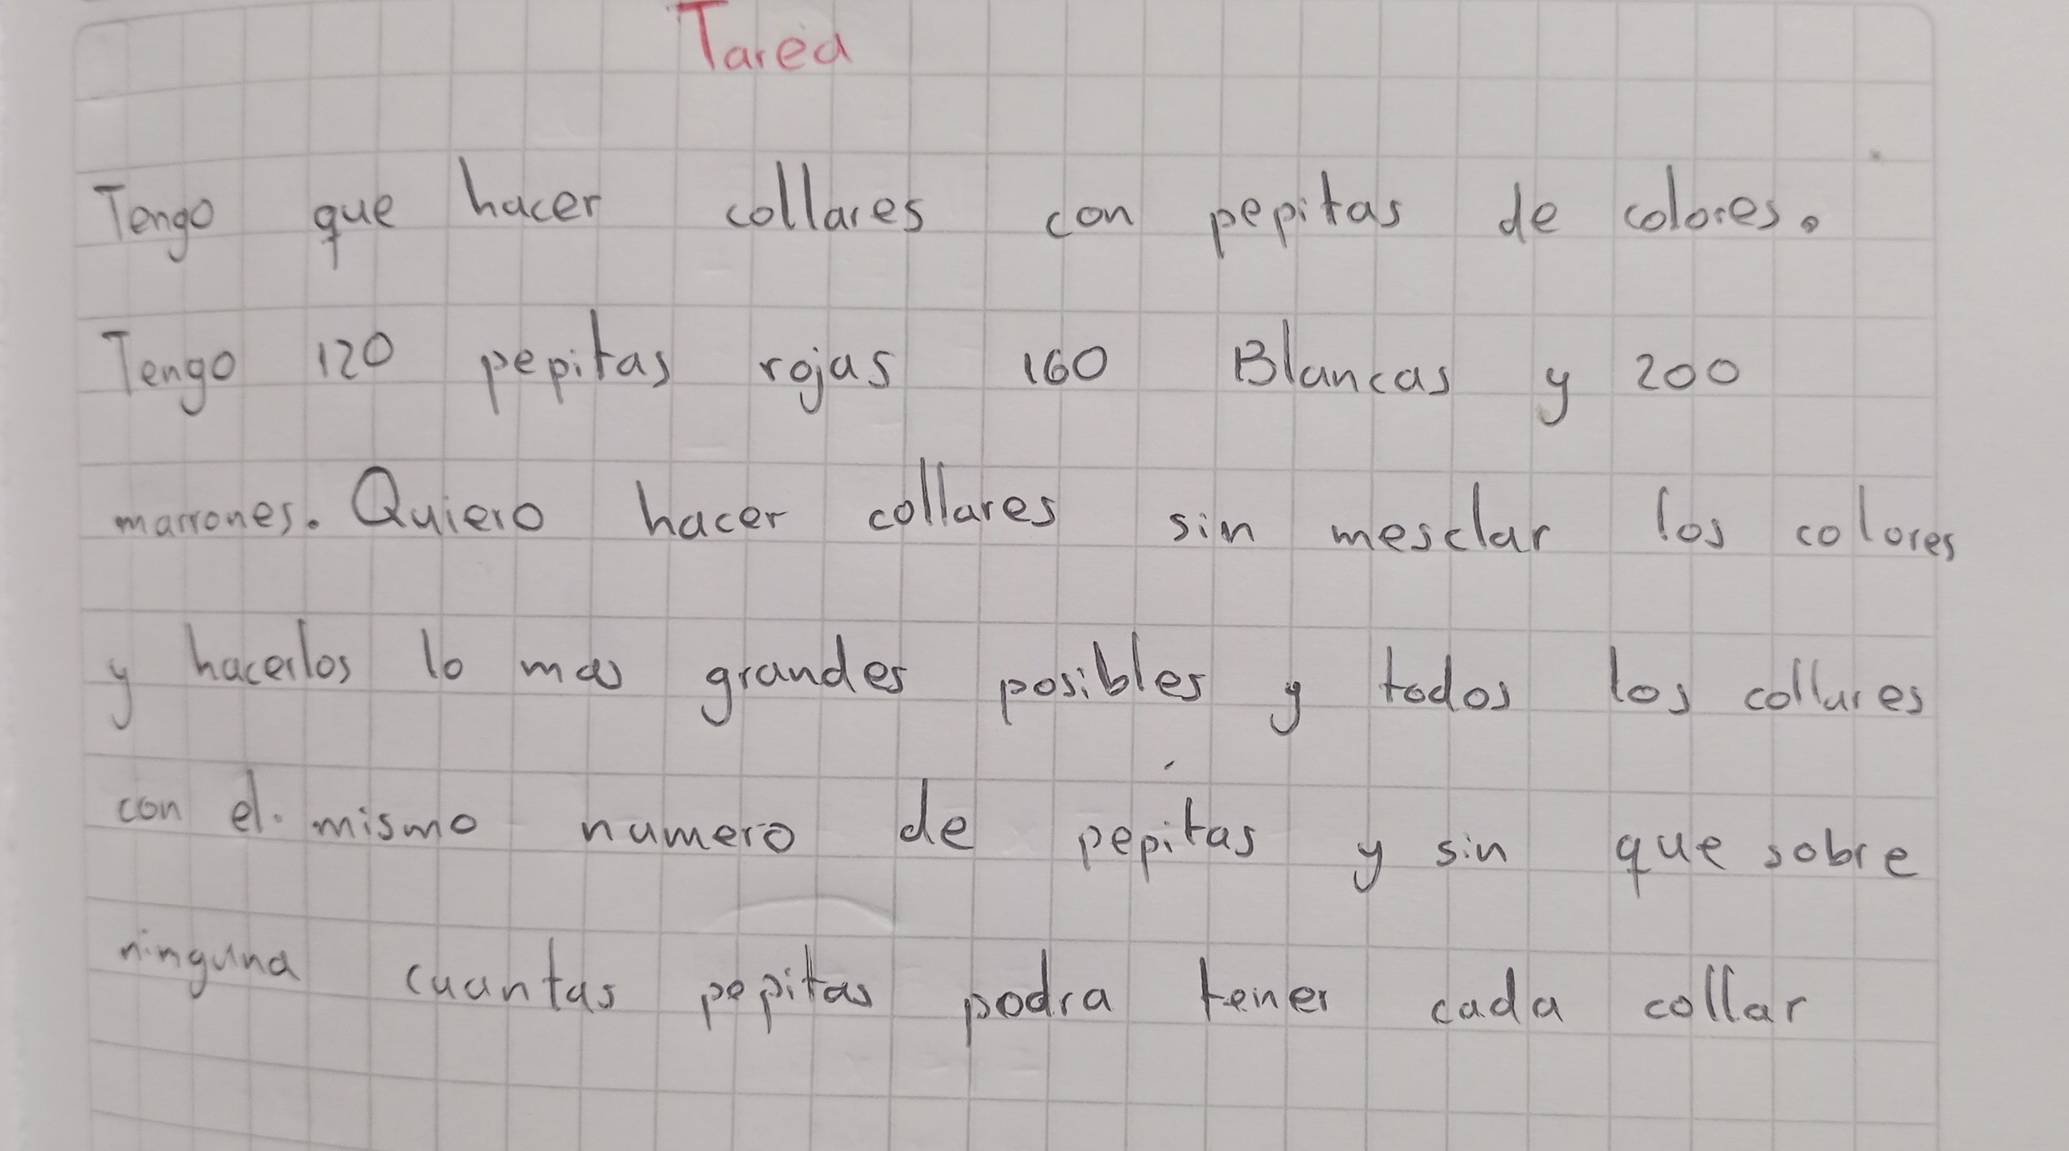 Tarea
Tengo que hacer collares con pepitas de colores.
Tengo 120 pepitas rojas 160 Blancas y 200
marrones. Quiero hacer collares sin mesclar los colores
y hacerlos lo mas grandes posibles y todos los collares
con el mismo numero de pepitas y sin que sobre
ninguna cuantas pepitas podra tener cada collar